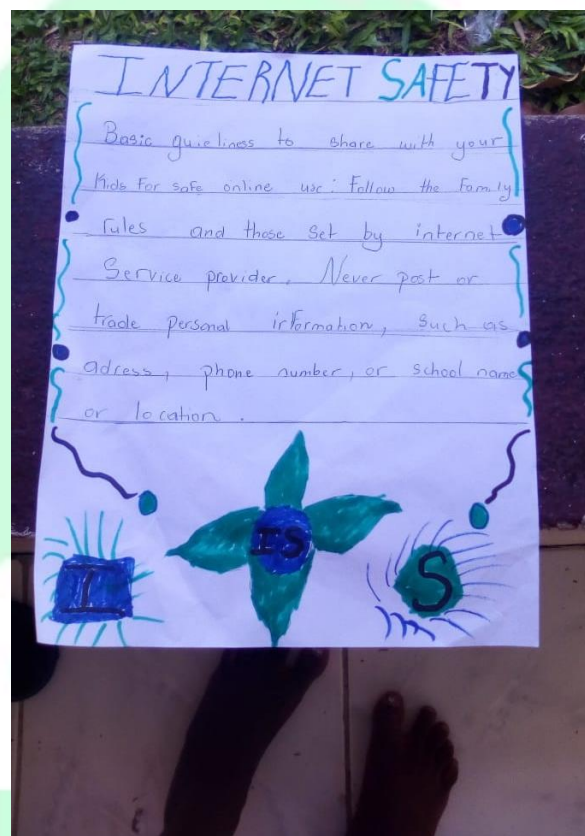 INTERNET SAFETY
Basic guieliness to share with your
Kids For safe online use: Follow the Family
rules and those set by internet
Service provider, Never post or
trade personal irformation, such as
adress, phone number, or school name
or location.
IS
I
S